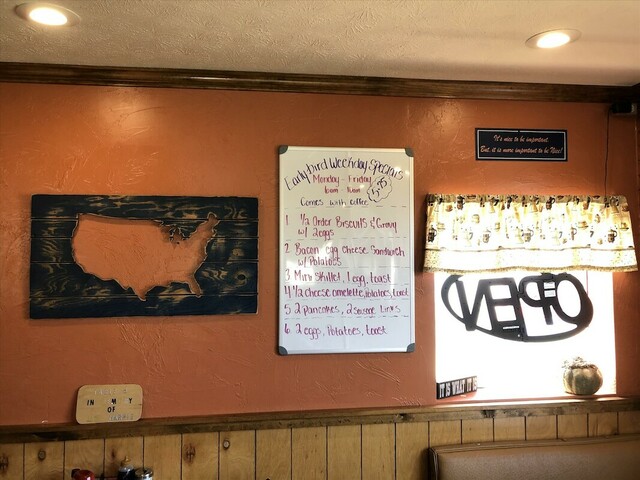 It's nice to be important.
But, it is more important to be Nice!
Early bird Weekday Specials
Monday - Friday
6am 11am
Comes with coffee
1 1/2 Order Biscuits & Gravy
w/ 2 eggs
2 Bacon egg cheese Sandwich
w/ Potatoes
3 Mini Skillet, 1 egg, toast
4 1/2 cheese omelette, Potatoes, toast
5 2 Pancakes, 2 Sausage Links
6 2 eggs, Potatoes, toast
OPEN
IT IS WHAT IT IS
IN
OF